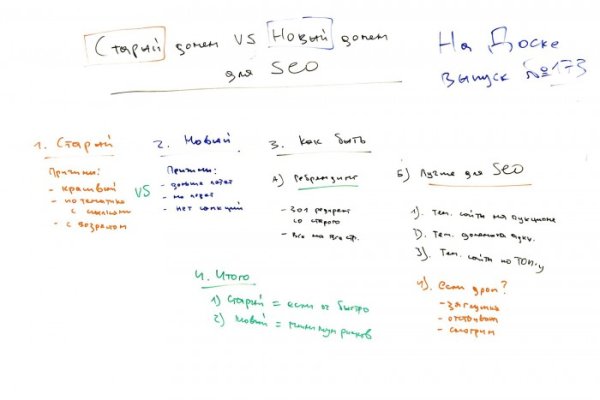 Старый домен VS Новый домен
для SEO
На Доске
выпуск №173
1. Старый
Причины:
- красивый
- по тематике
с ссылками
- с возрастом
VS
2. Новый
Причины:
- дольше
- нет санкций
3. Как быть
А) Ребрендинг
- 301 редирект
со старого
- Все на все стр.
Б) Лучше для SEO
1). Тем. сайты на аукционе
2). Тем. домены
3). Тем. сайты по ТОП-у
4). если дроп?
- загнулись
- отстаивать
- смотрим
4. Итого
1) Старый = если оч быстро
2) Новый = минимум рисков